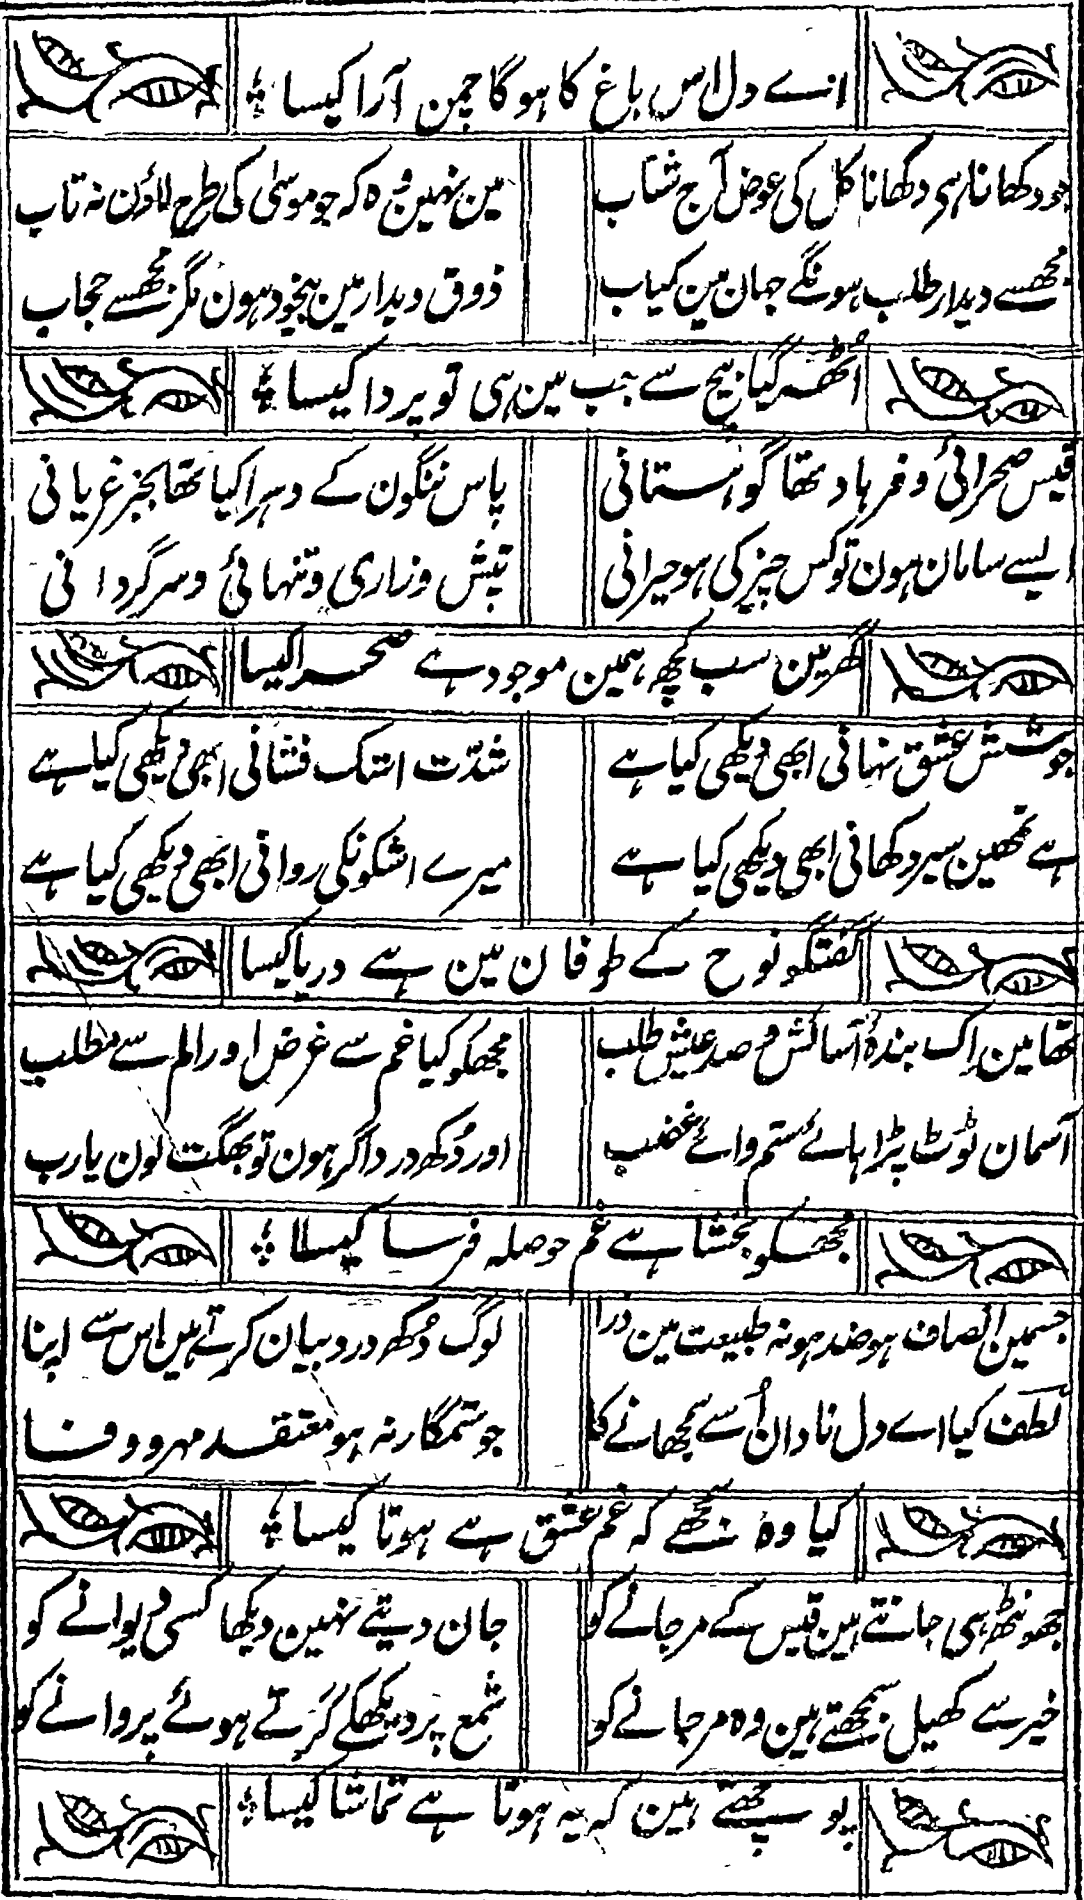 اے دل اس باغ کا ہوگا چمن آرا کیسا
جو دکھانا ہی دکھانا کل کی عوض آج شتاب
مین نہین وہ کہ جو موسیٰ کی طرح لاؤن نہ تاب
مجھسے دیدار طلب ہونگے جہان مین کمیاب
ذوق دیدار مین بیخود ہون مگر مجھسے حجاب
اُٹھہ گیا بیچ سے جب مین ہی تو پردا کیسا
قیس صحرائی و فرہاد تھا گوہستانی
پاس ننگون کے دہرا کیا تھا بجز عریانی
ایسے سامان ہون تو کس چیز کی ہو حیرانی
تپش و زاری و تنہائی و سرگردانی
گھر مین سب کچھ ہمین موجود ہے صحرا کیسا
جوشش عشق نہانی ابھی دیکھی کیا ہے
شدّت اشک فشانی ابھی دیکھی کیا ہے
ہے تمھین سیر دکھانی ابھی دیکھی کیا ہے
میرے اشکونکی روانی ابھی دیکھی کیا ہے
گفتگو نوح کے طوفان مین ہے دریا کیسا
تھا مین اِک بندۂ آسائش و صد عیش طلب
مجھکو کیا غم سے غرض اور الم سے مطلب
آسمان ٹوٹ پڑا ہائے ستم وائے غضب
اور دُکھ درد اگر ہون تو بھگت لون یارب
مجھکو بخشا ہے غم حوصلہ فرسا کیسا
جسمین انصاف ہو ضد ہو نہ طبیعت مین ذرا
لوگ دُکھ درد بیان کرتے ہین اس سے اپنا
لطف کیا اے دل نادان اُسے سمجھانے کا
جو ستمگار نہ ہو معتقد مہر و وفا
کیا وہ سمجھے کہ غم عشق ہے ہوتا کیسا
جھونٹھ ہی جانتے ہین قیس کے مر جانے کو
جان دیتے نہین دیکھا کسی دیوانے کو
خیر سے کھیل سمجھتے ہین وہ مر جانے کو
شمع پر دیکھکے گرتے ہوئے پروانے کو
پوچھتے ہین کہ یہ ہوتا ہے تماشا کیسا